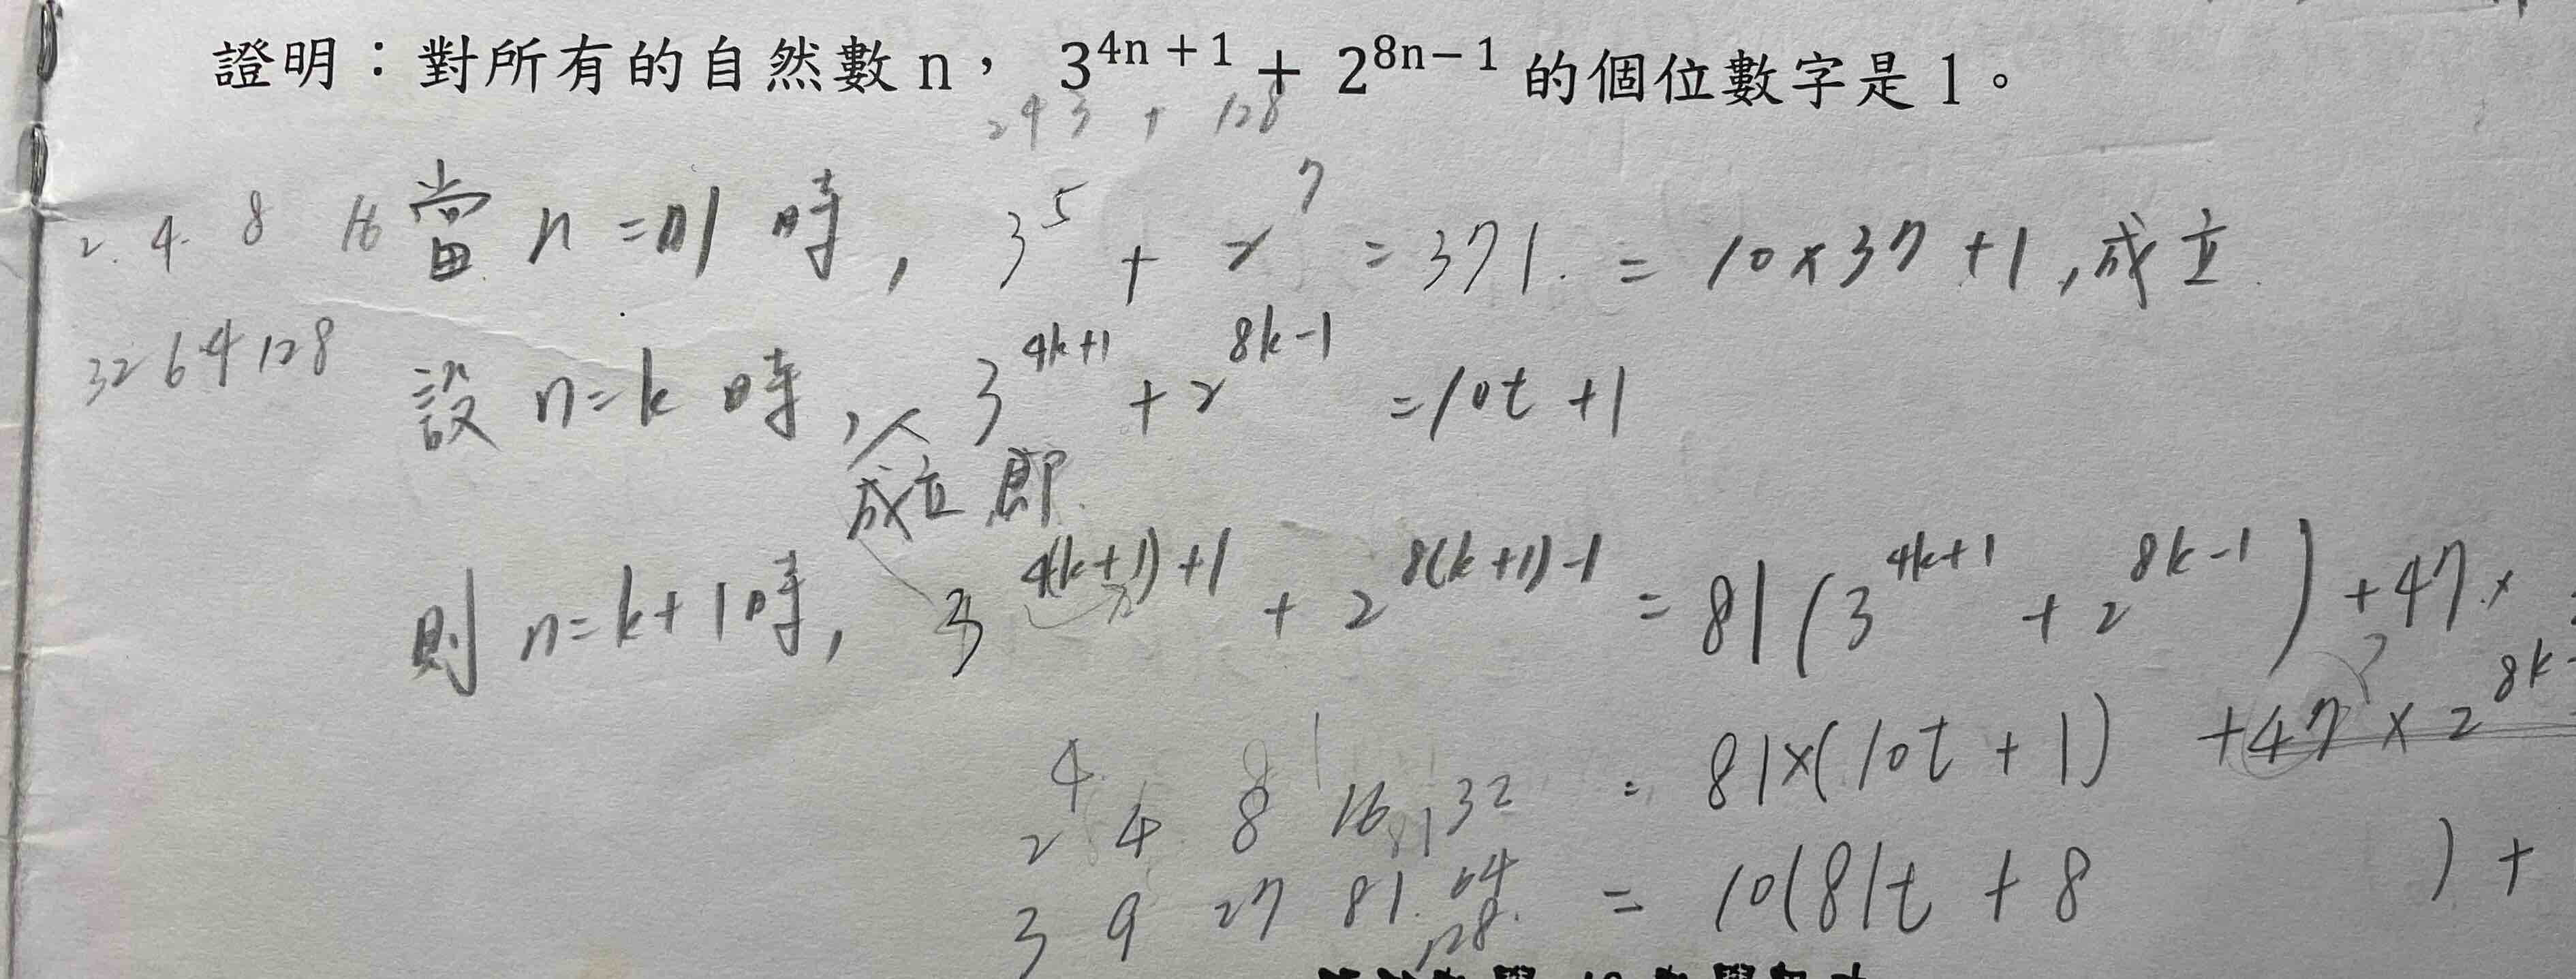 證明：對所有的自然數 n， 3^{4n+1} + 2^{8n-1} 的個位數字是 1。
243 + 128
2. 4. 8 16
當 n = 1 時, 3^5 + 2^7 = 371. = 10×37 +1 , 成立.
32 64 128
設 n=k 時, 成立 即 3^{4k+1} + 2^{8k-1} = 10t + 1
則 n=k+1 時, 3^{4(k+1)+1} + 2^{8(k+1)-1} = 81(3^{4k+1} + 2^{8k-1}) + 47×
= 81×(10t + 1) + 47 × 2^{8k
4
2 4 8 16 32
= 10(81t + 8 ) +
3 9 27 81. 64
128.